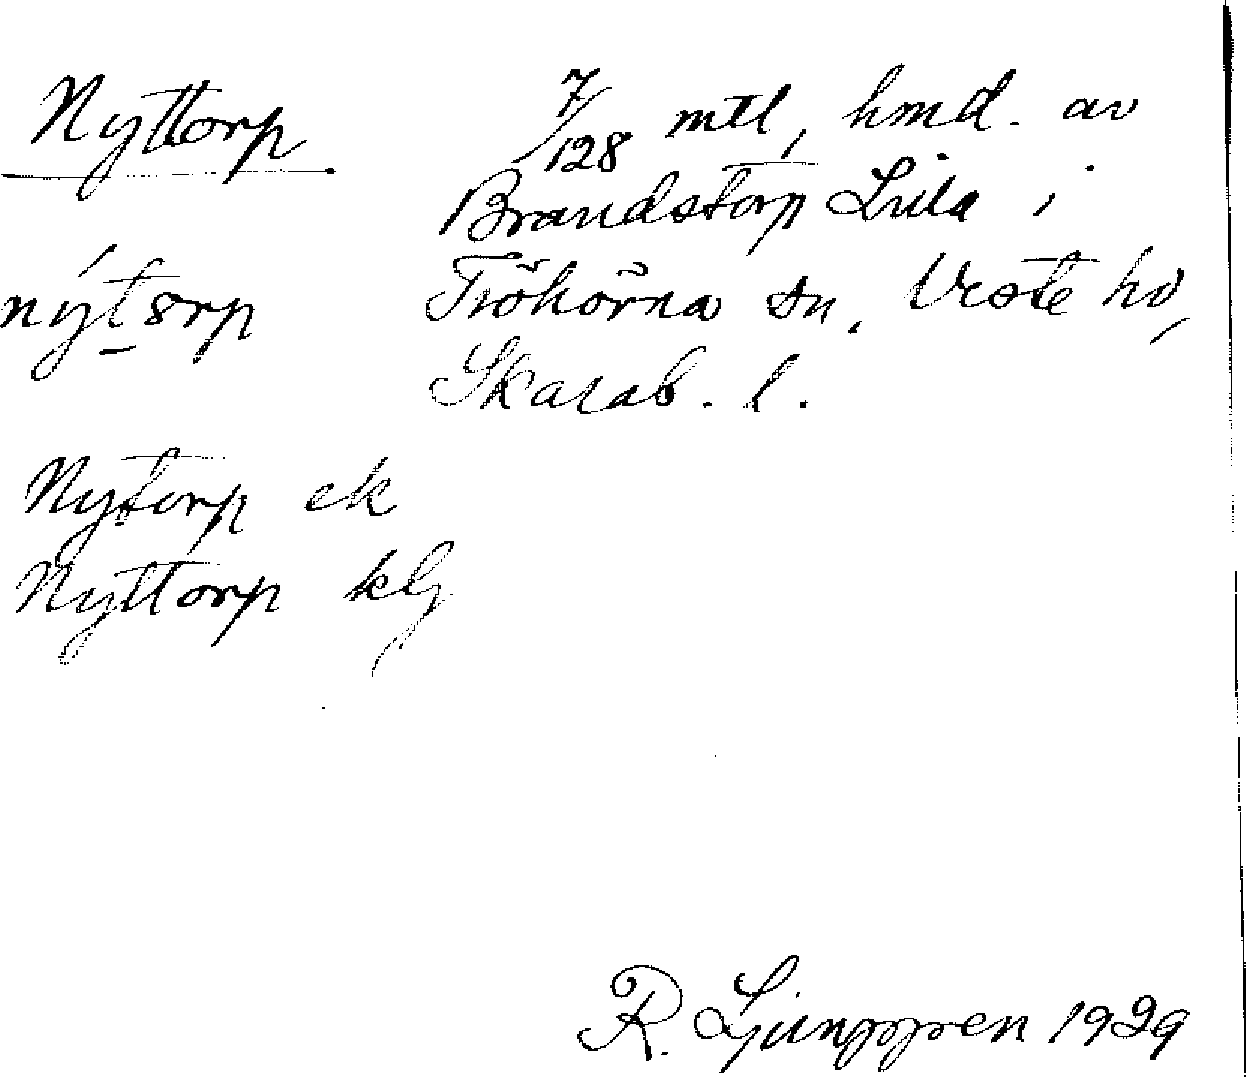 Nyttorp
7/128 mtl, hmd. av
Brandstorp Lilla i
Tröhörna sn, Viste hd,
Skarab. l.
nýtorp
Nytorp ek
Nyttorp klg
R. Ljunggren 1929